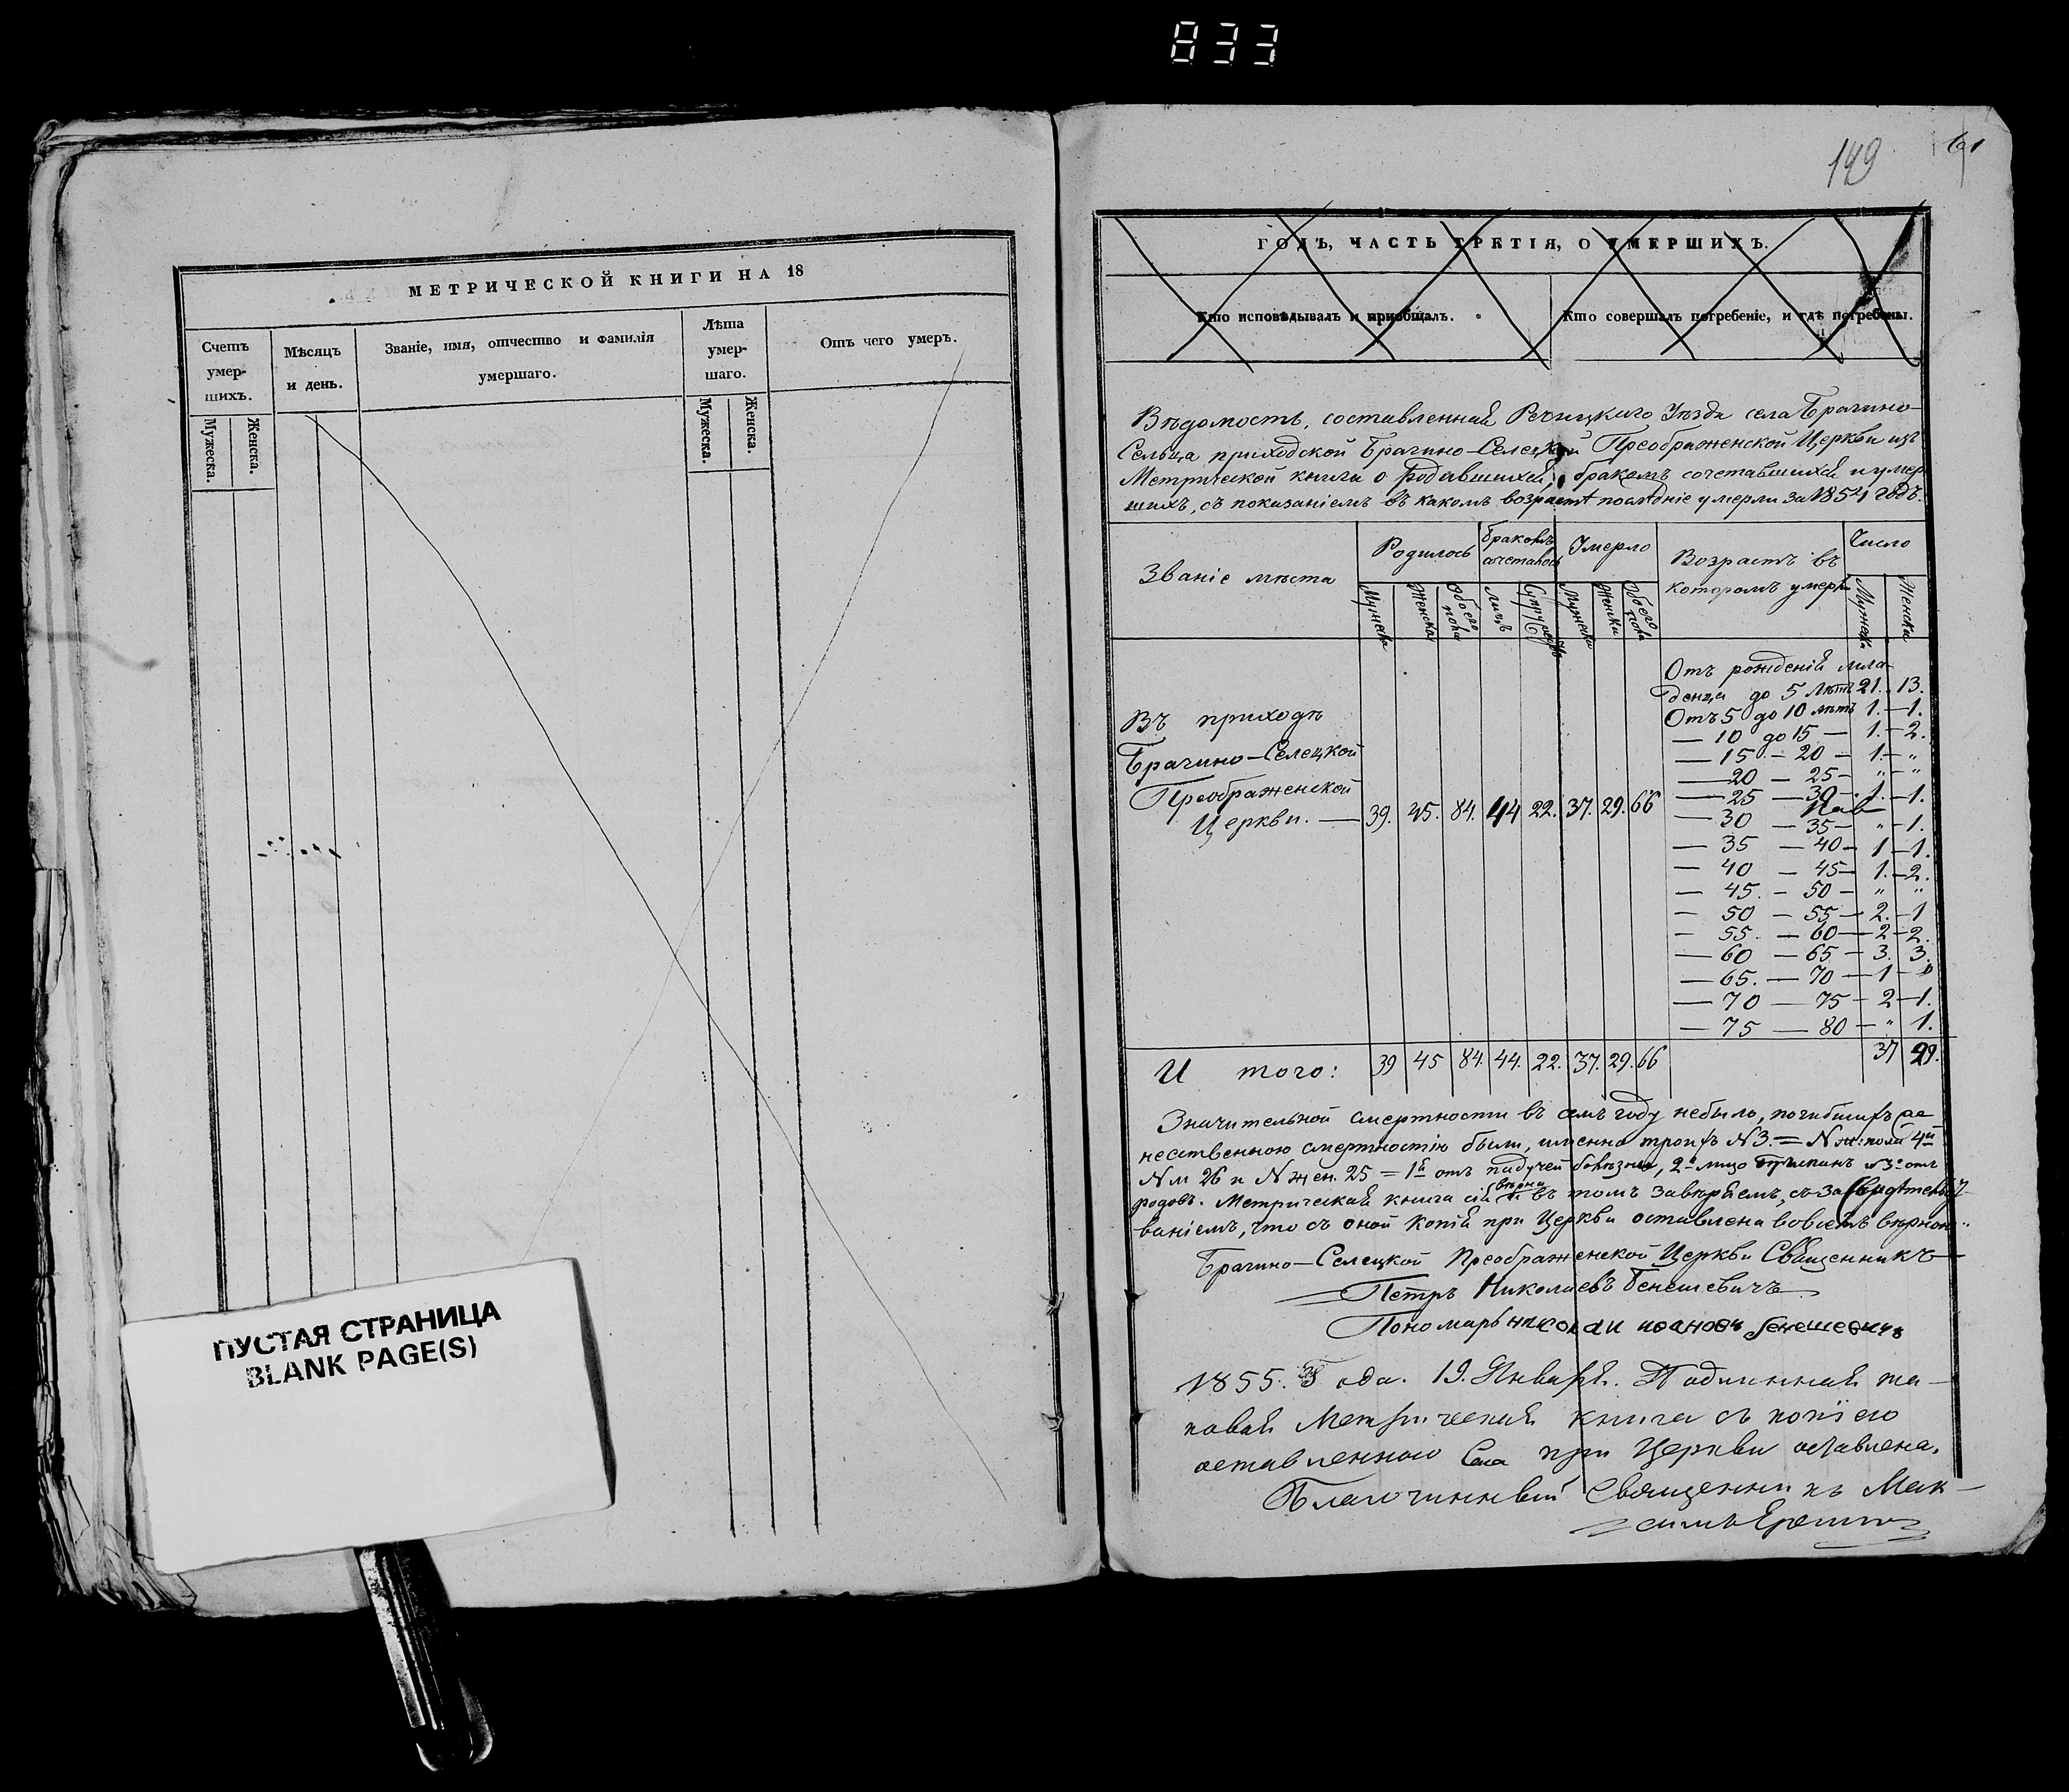 833
149
61
МЕТРИЧЕСКОЙ КНИГИ НА 18
Счетъ умер-шихъ.
Мужеска.
Женска.
Мѣсяцъ и день.
Званіе, имя, отчество и фамилія умершаго.
Лѣта умер-шаго.
Мужеска.
Женска.
Отъ чего умеръ.
ПУСТАЯ СТРАНИЦА
BLANK PAGE(S)
ГОДЪ, ЧАСТЬ ТРЕТІЯ, О УМЕРШИХЪ.
Кто исповѣдывалъ и пріобщалъ.
Кто совершалъ погребеніе, и гдѣ погребены.
Вѣдомость, составленная Рѣчицкаго Уѣзда села Брагино-
Сельца приходской Брагино-Селецкой Преображенской Церкви изъ
Метрической книги о родившихся, бракомъ сочетавшихся и умер
шихъ, съ показаніемъ въ какомъ возрастѣ послѣдніе умерли за 1854 годъ.
Званіе мѣста
Родилось
Мужеска
Женска
Обоего пола
Бракомъ сочеталось
Лицъ
Супружествъ
Умерло
Мужеска
Женска
Обоего пола
Возрастъ въ
которомъ умерли
Число
Мужеска
Женска
Въ приходѣ
Брагино-Селецкой
Преображенской
Церкви. — 39. 45. 84. 44 22. 37. 29. 66
Отъ рожденія мла-
денца до 5 лѣтъ 21. 13.
Отъ 5 до 10 лѣтъ 1. — 1.
— 10 до 15 — 1. — 2.
— 15 — 20 — 1. — "
— 20 — 25 — " — "
— 25 — 30 — 1. — 1.
— 30 — 35 — " — 1.
— 35 — 40 — 1 — 1.
— 40 — 45 — 1. — 2.
— 45. — 50 — " "
— 50 — 55 — 2. — 1
— 55. — 60 — 2 — 2.
— 60 — 65 — 3. 3.
— 65. — 70 — 1 — "
— 70 — 75 — 2 — 1.
— 75 — 80 — " 1.
И того: 39 45 84. 44. 22. 37. 29. 66 37 29.
Значительной смертности въ семъ году небыло, погибшихъ
неественною смертностію были, именно троихъ N 3. = N жен: пола
N м 26 и N жен. 25 = 1й отъ падучей болѣзни, 2е лицо N 3е отъ
родовъ. Метрическая книга сія вѣрна въ томъ завѣряемъ, съ засвидѣтельст-
ваніемъ, что съ оной копія при Церкви оставлена вовсемъ вѣрною..
Брагино-Селецкой Преображенской Церкви Священникъ
Петръ Николаевъ Бенешевичъ
Пономарь Николаи Иоановъ Бенешевичъ
1855. Года. 19. Января. Подлинная та-
ковая Метрическая книга съ копіею
оставленною при Церкви
Благочинный Священникъ Мак-
симъ